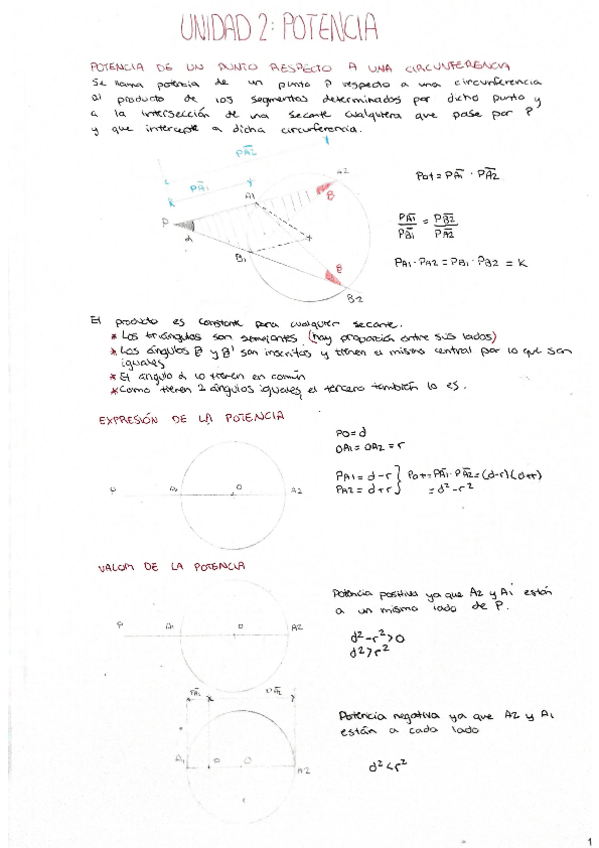 UNIDAD 2: POTENCIA
POTENCIA DE UN PUNTO RESPECTO A UNA CIRCUNFERENCIA
Se llama potencia de un punto P respecto a una circunferencia
al producto de los segmentos determinados por dicho punto y
a la intersección de una secante cualquiera que pase por P
y que intercepte a dicha circunferencia.
PA2
PA1
A2
A1
B
P
α
B1
B
B2
Pot = PA1 · PA2
PA1 / PB1 = PB2 / PA2
PA1 · PA2 = PB1 · PB2 = K
El producto es constante para cualquier secante.
* Los triángulos son semejantes (hay proporción entre sus lados)
* Los ángulos B y B' son inscritos y tienen el mismo central por lo que son
iguales
* El ángulo α lo tienen en común
* Como tienen 2 ángulos iguales el tercero también lo es.
EXPRESIÓN DE LA POTENCIA
P A1 O A2
PO = d
OA1 = OA2 = r
PA1 = d - r } Pot = PA1 · PA2 = (d-r)(d+r)
PA2 = d + r } = d² - r²
VALOR DE LA POTENCIA
P A1 O A2
Potencia positiva ya que A2 y A1 están
a un mismo lado de P.
d² - r² > 0
d² > r²
PA1 PA2
A1 O A2
Potencia negativa ya que A2 y A1
están a cada lado
d² < r²
1